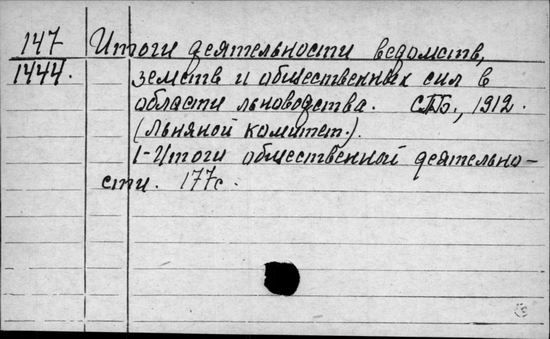 147 Итоги деятельности ведомств,
1444. земств и общественных сил в
области льноводства. СПб., 1912.
(Льняной комитет.).
1-Итоги общественной деятельно-
сти. 177с.